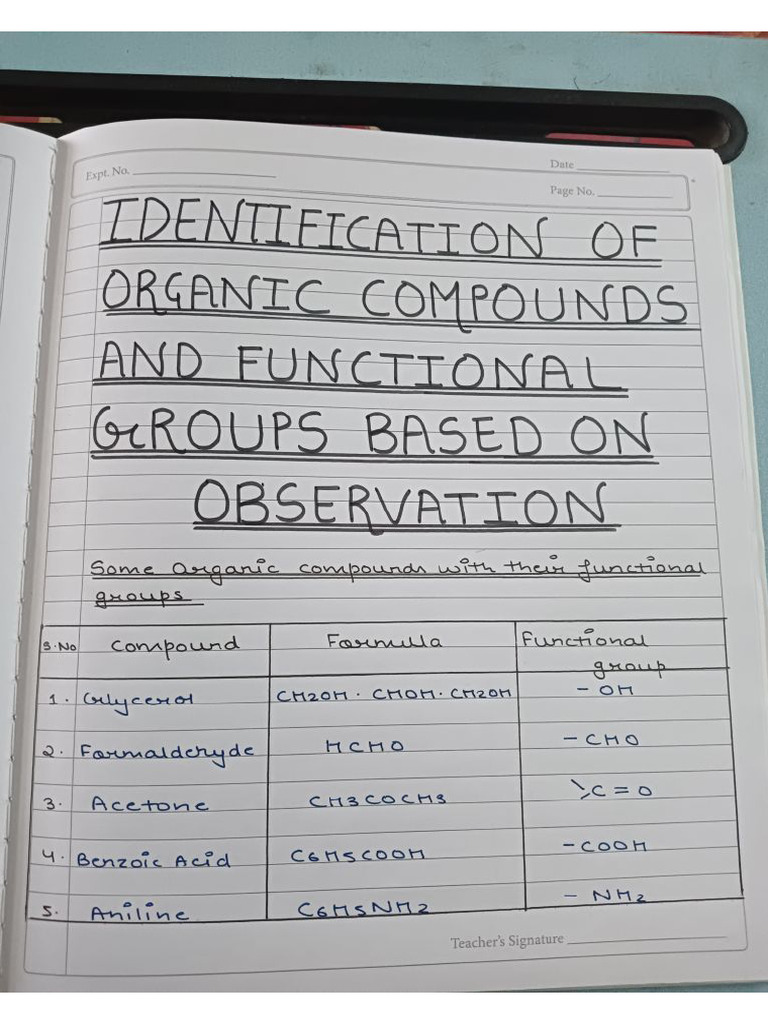 Expt. No.
Date
Page No.
IDENTIFICATION OF
ORGANIC COMPOUNDS
AND FUNCTIONAL
GROUPS BASED ON
OBSERVATION
Some Organic compounds with their functional
groups
S.No Compound Formulla Functional
group
1. Glycerol CH2OH · CHOH · CH2OH - OH
2. Formalderyde HCHO - CHO
3. Acetone CH3COCH3 >C = O
4. Benzoic Acid C6H5COOH - COOH
5. Aniline C6H5NH2 - NH2
Teacher's Signature